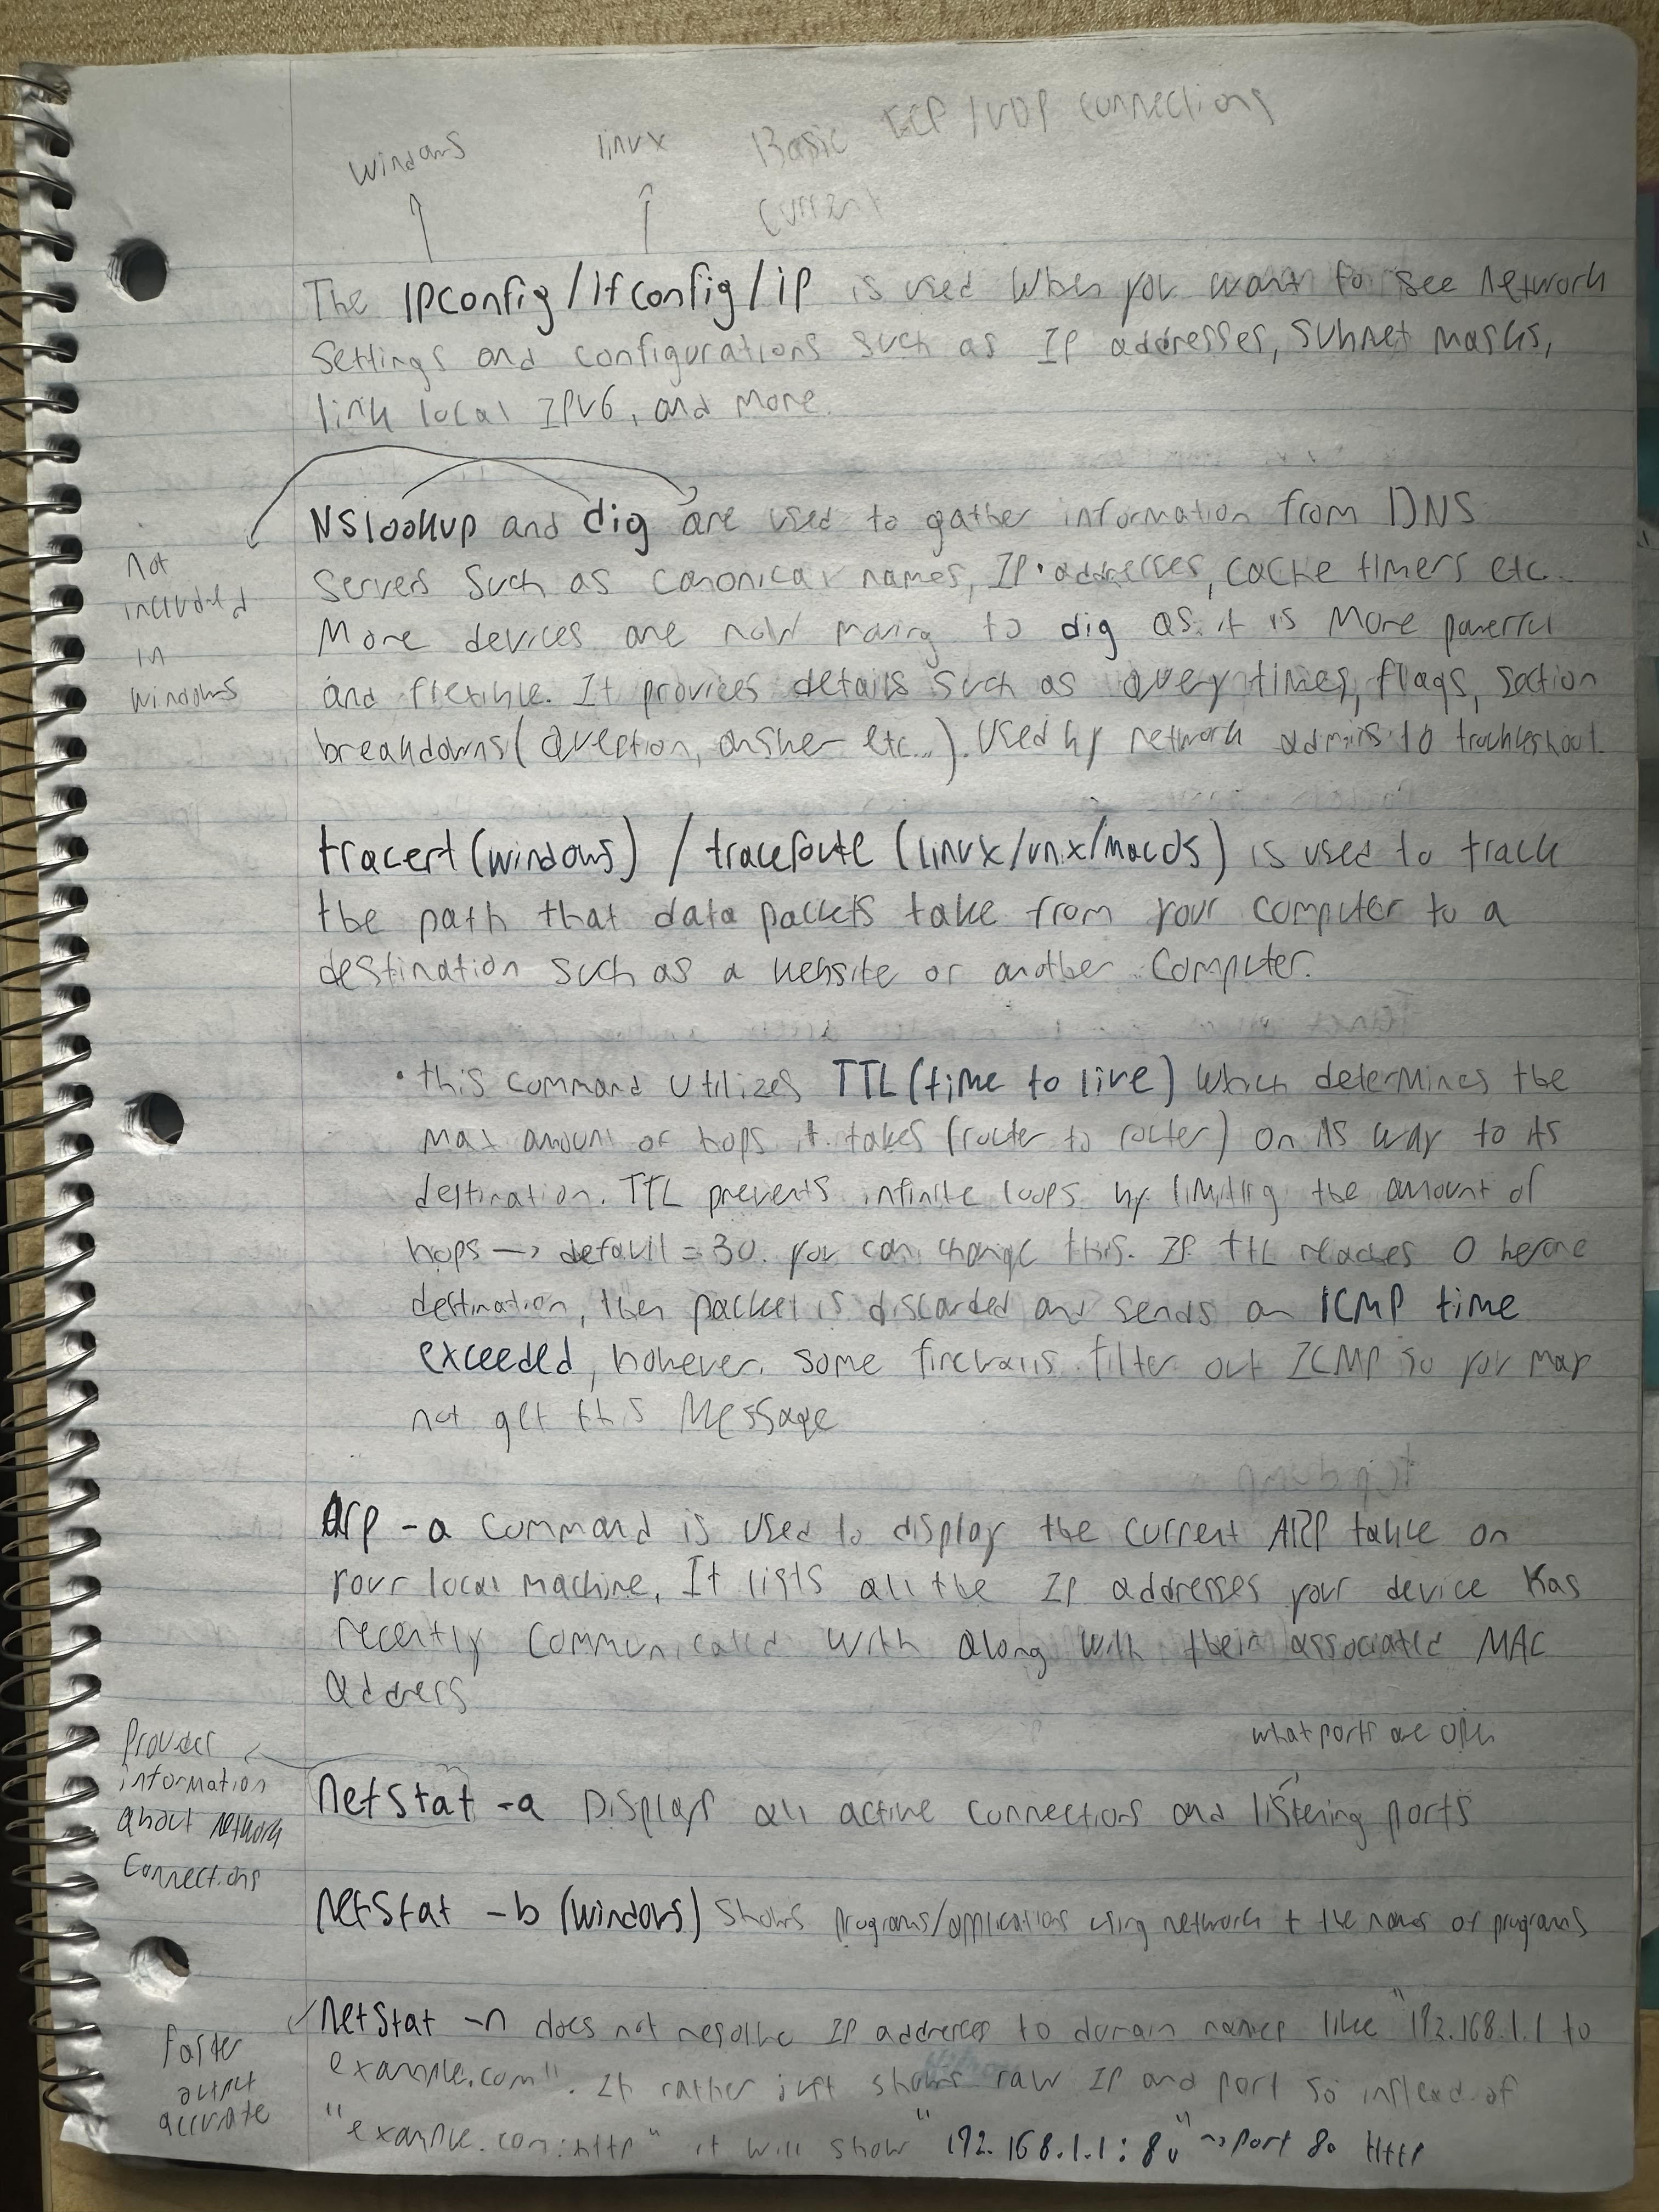 Basic TCP/UDP connections
windows linux current
The ipconfig/ifconfig/ip is used when you want to see network
settings and configurations such as IP addresses, subnet masks,
link local IPv6, and more.
NSlookup and dig are used to gather information from DNS
servers such as canonical names, IP addresses, cache timers etc.
not
included
in
windows
More devices are now moving to dig as it is more powerful
and flexible. It provides details such as query times, flags, section
breakdowns (question, answer etc..). Used by network admins to troubleshoot.
tracert (windows) / traceroute (linux/unix/macOS) is used to track
the path that data packets take from your computer to a
destination such as a website or another computer.
• this command utilizes TTL (time to live) which determines the
max amount of hops it takes (router to router) on its way to its
destination. TTL prevents infinite loops by limiting the amount of
hops → default = 30. you can change this. If TTL reaches 0 before
destination, then packet is discarded and sends an ICMP time
exceeded, however, some firewalls filter out ICMP so you may
not get this message
Arp -a command is used to display the current ARP table on
your local machine. It lists all the IP addresses your device has
recently communicated with along with their associated MAC
address
what ports are open
Provides
information
about network
connections
netstat -a Displays all active connections and listening ports
netstat -b (windows) shows programs/applications using network + the names of programs
netstat -n does not resolve IP addresses to domain names like "192.168.1.1 to
example.com". It rather just shows raw IP and port so instead of
"example.com:http" it will show "192.168.1.1:80" → port 80 HTTP
faster
output
accurate